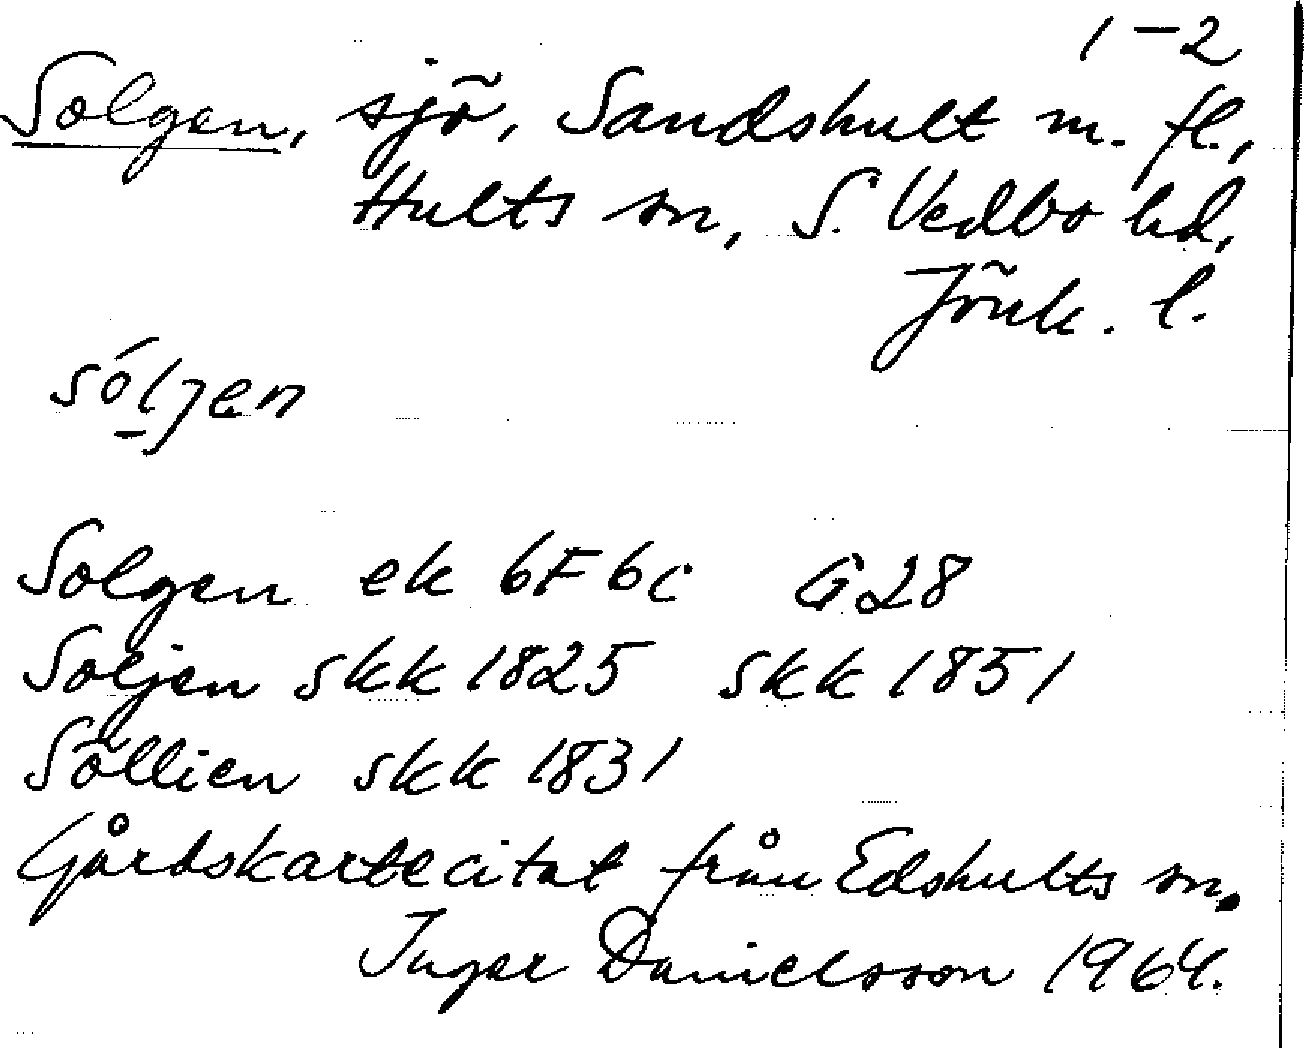 1-2
Solgen, sjö, Sandshult m. fl.,
Hults sn, S. Vedbo hd,
Jönk. l.
sóljen
Solgen ek 6F6c G28
Soljen skk 1825 skk 1851
Söllien skk 1831
Gårdskartecitat från Edshults sn.
Inger Danielsson 1964.